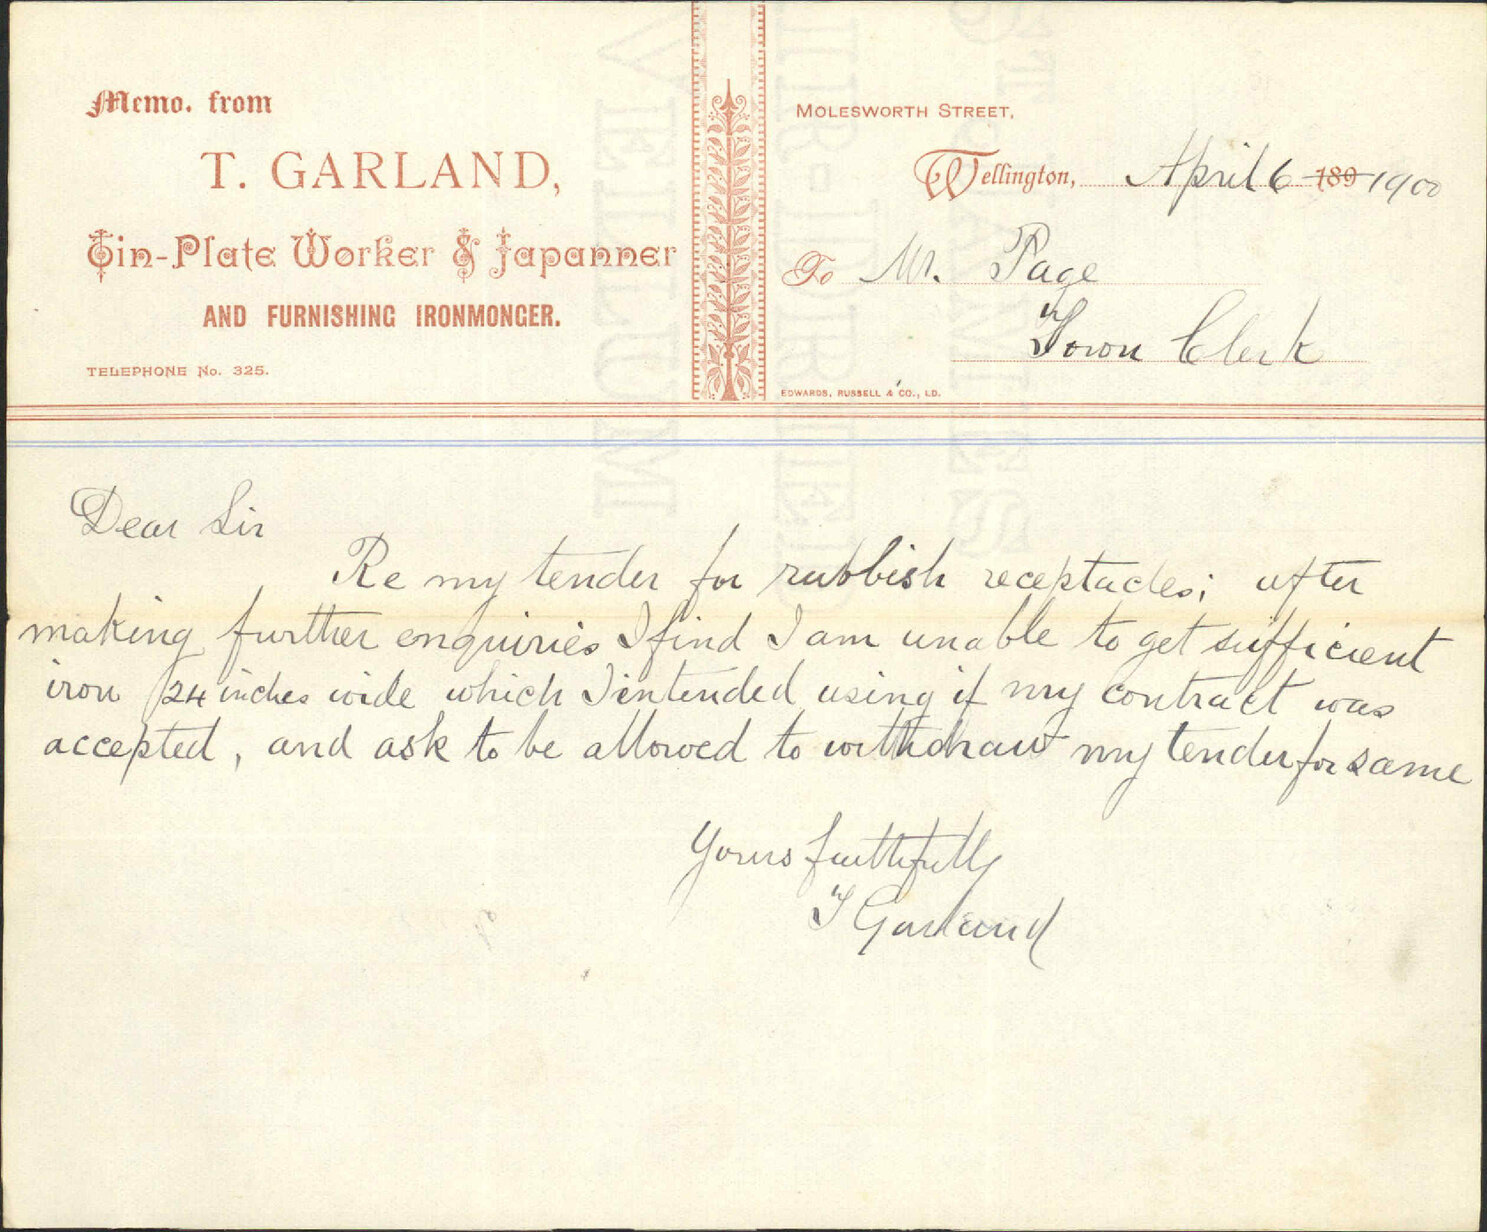 Memo. from
T. GARLAND,
Tin-Plate Worker & Japanner
AND FURNISHING IRONMONGER.
TELEPHONE No. 325.
MOLESWORTH STREET,
Wellington, April 6 189 1900
To Mr. Page
Town Clerk
EDWARDS, RUSSELL & CO., LD.
Dear Sir
Re my tender for rubbish receptacles; after
making further enquiries I find I am unable to get sufficient
iron 24 inches wide which I intended using if my contract was
accepted, and ask to be allowed to withdraw my tender for same
Yours faithfully
T Garland